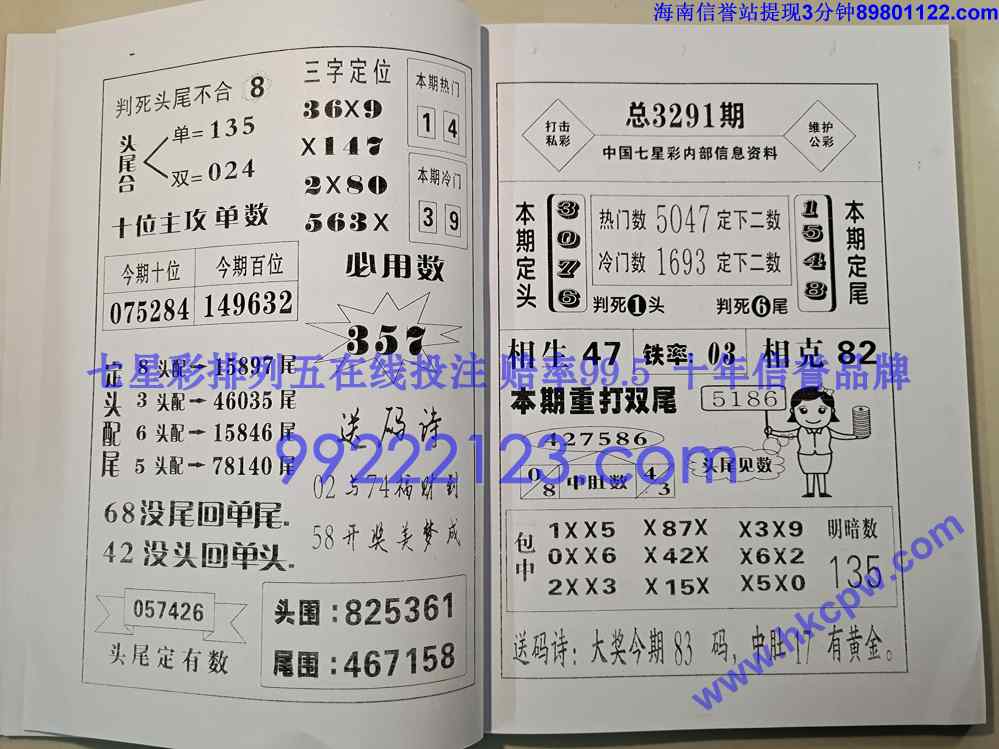 海南信誉站提现3分钟89801122.com
判死头尾不合 8
头尾合
单=135
双=024
十位主攻单数
今期十位 今期百位
075284 149632
三字定位
36X9
X147
2X80
563X
本期热门
1 4
本期冷门
3 9
必用数
357
定头配尾
8 头配→15897尾
3 头配→46035尾
6 头配→15846尾
5 头配→78140尾
送码诗
02与74福财到
58开奖美梦成
68没尾回单尾.
42没头回单头.
057426
头尾定有数
头围:825361
尾围:467158
打击私彩
总3291期
中国七星彩内部信息资料
维护公彩
本期定头
3076
热门数 5047 定下二数
冷门数 1693 定下二数
判死1头 判死6尾
1548
本期定尾
相生 47 铁率:03 相克 82
本期重打双尾
5186
427586
0/8 中肚数 4/3
头尾见数
包中
1XX5 X87X X3X9
0XX6 X42X X6X2
2XX3 X15X X5X0
明暗数
135
送码诗:大奖今期83码,中肚17有黄金。
七星彩排列五在线投注 赔率99.5 十年信誉品牌
99222123.com
www.hkcpw.com